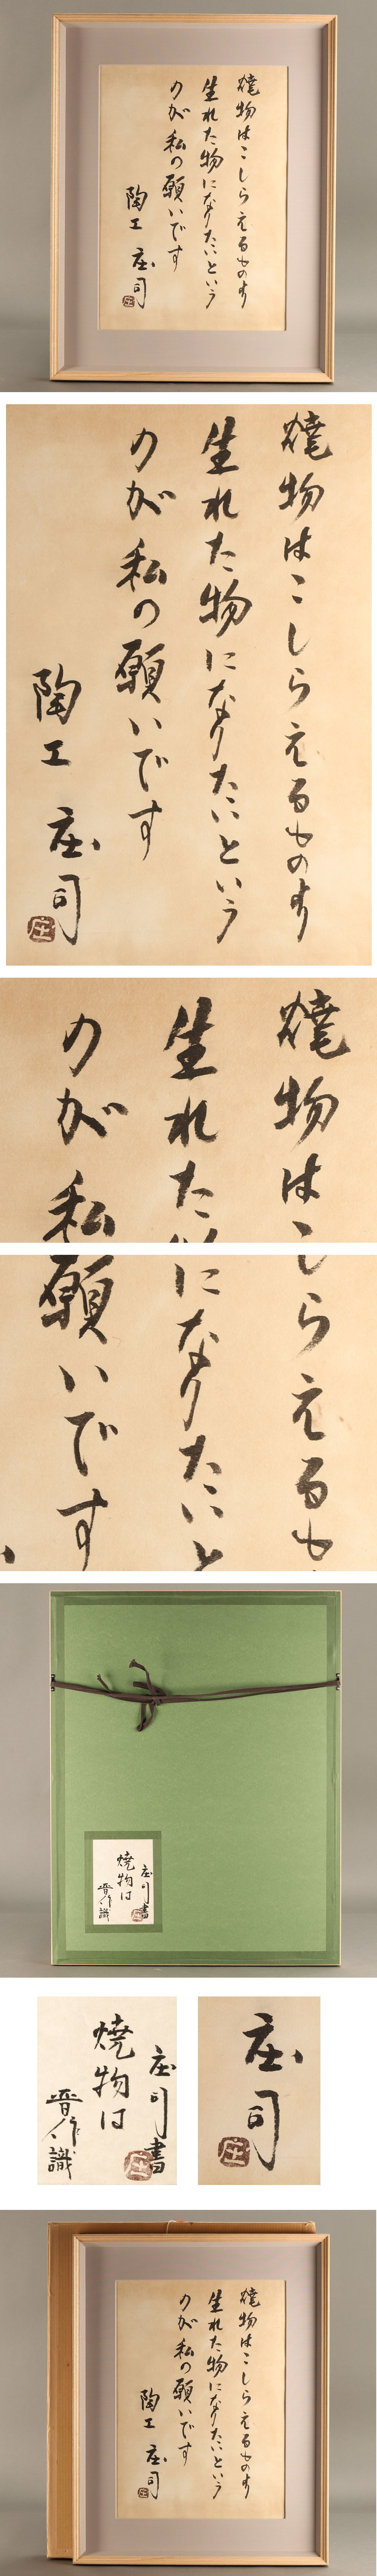 焼物はこしらえるものより
生れた物になりたいという
のが私の願いです
陶工 庄司
庄
焼物はこしらえるものより
生れた物になりたいという
のが私の願いです
陶工 庄司
庄
焼物は
生れた
のが私
らえるも
になりたいと
願いです
庄司書
焼物は
晋作識
庄司書
焼物は
晋作識
庄司
庄
焼物はこしらえるものより
生れた物になりたいという
のが私の願いです
陶工 庄司
庄